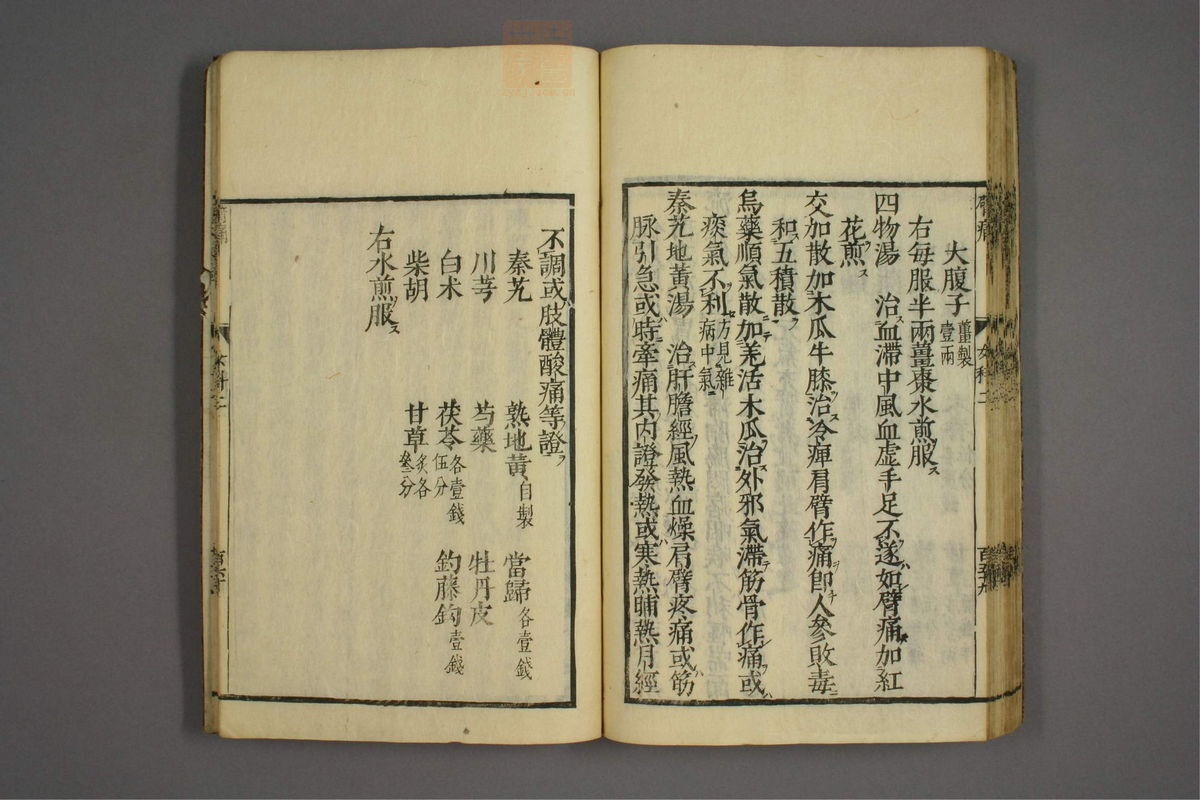 臂痛
女科二
百五十九
大腹子薑製壹兩
右每服半兩薑棗水煎服ス
四物湯 治ス血滯中風血虛手足不遂如臂痛加紅
花煎ス
交加散加木瓜牛膝治ス冷痺肩臂作痛即人參敗毒
和五積散
烏藥順氣散加羌活木瓜治ス外邪氣滯筋骨作痛或
痰氣不利方見雜病中氣
秦艽地黃湯 治ス肝膽經風熱血燥肩臂疼痛或筋
脉引急或時牽痛其内證發熱或寒熱晡熱月經
不調或肢體酸痛等證
秦艽 熟地黃自製 當歸各壹錢
川芎 芍藥 牡丹皮
白朮 茯苓各壹錢伍分 釣藤鈎壹錢
柴胡 甘草炙各叄分
右水煎服ス